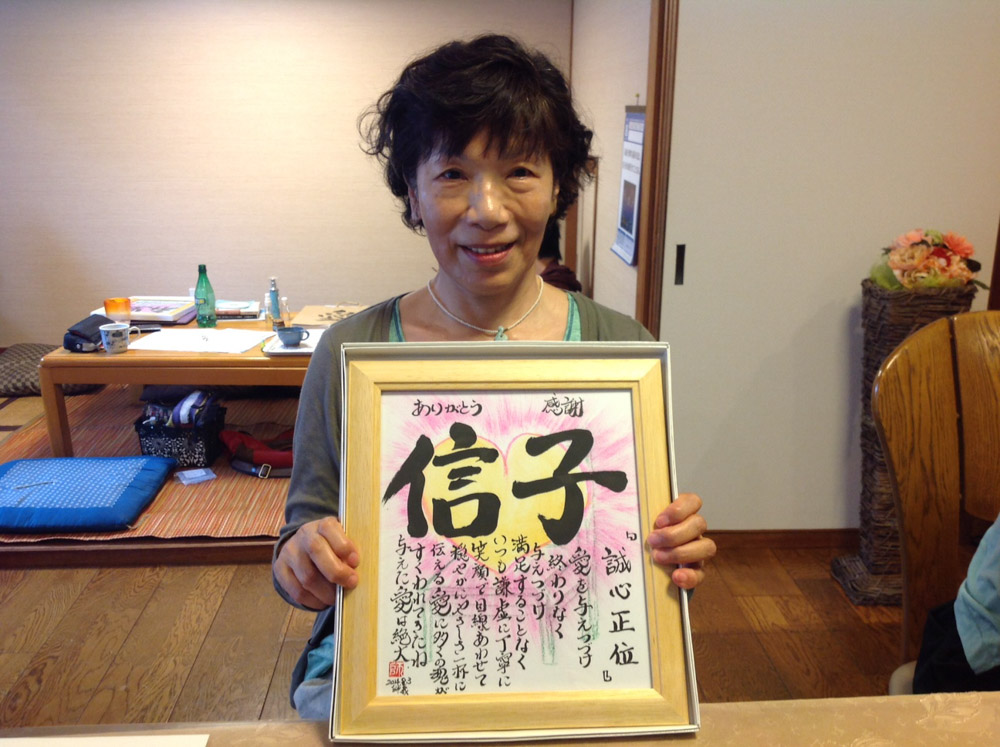 ありがとう
感謝
信子
『誠心正位』
愛を与えつづけ
終わりなく
与えつづけ
満足することなく
いつも謙虚に丁寧に
笑顔で目線あわせて
穏やかにやさしさ一杯に
伝える愛に多くの魂が
すくわれてきたね
与えた愛は絶大